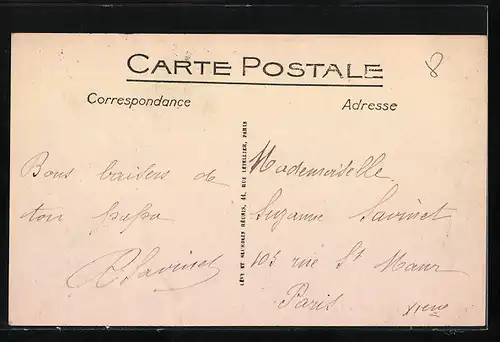 8
CARTE POSTALE
Correspondance
Adresse
Bons baisers de
ton papa
R Savinet
LÉVY ET NEURDEIN RÉUNIS, 44, RUE LETELLIER, PARIS
Mademoiselle
Suzanne Savinet
105 rue St Maur
Paris
XIeme